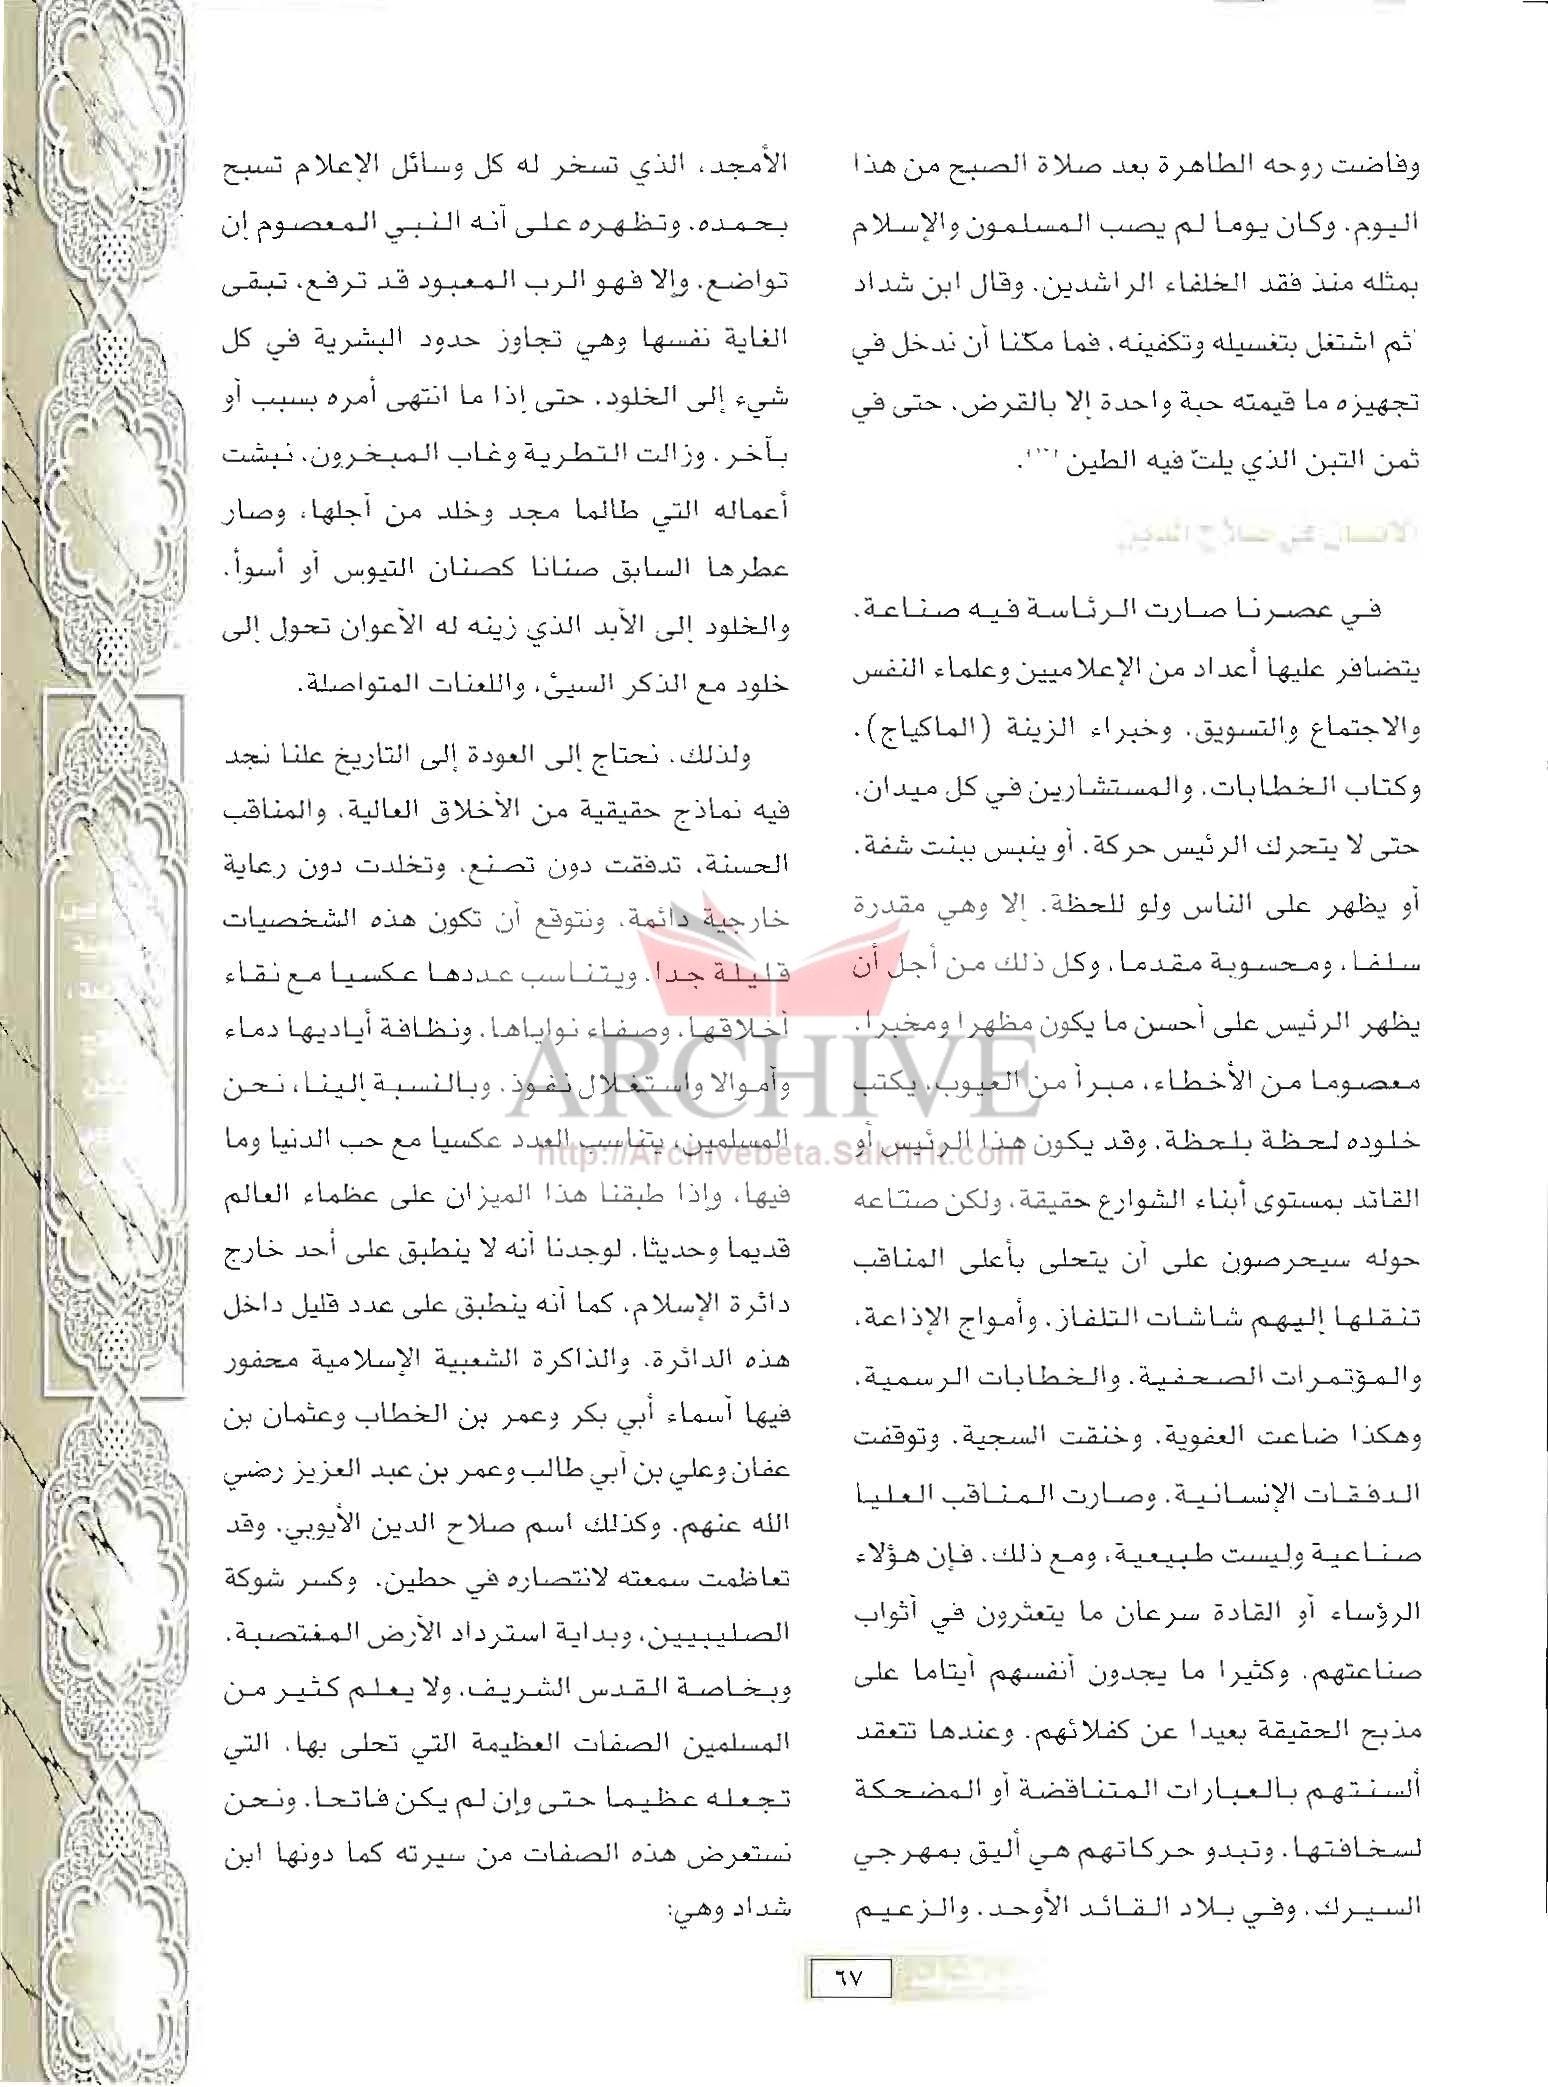 وفاضت روحه الطاهرة بعد صلاة الصبح من هذا
اليوم. وكان يوما لم يصب المسلمون والإسلام
بمثله منذ فقد الخلفاء الراشدين. وقال ابن شداد
ثم اشتغل بتغسيله وتكفينه. فما مكنّا أن ندخل في
تجهيزه ما قيمته حبة واحدة إلا بالقرض. حتى في
ثمن التبن الذي يلتّ فيه الطين.
في عصرنا صارت الرئاسة فيه صناعة.
يتضافر عليها أعداد من الإعلاميين وعلماء النفس
والاجتماع والتسويق. وخبراء الزينة (الماكياج).
وكتاب الخطابات. والمستشارين في كل ميدان.
حتى لا يتحرك الرئيس حركة. أو ينبس ببنت شفة.
أو يظهر على الناس ولو للحظة. إلا وهي مقدرة
سلفا، ومحسوبة مقدما. وكل ذلك من أجل أن
يظهر الرئيس على أحسن ما يكون مظهرا ومخبرا.
معصوما من الأخطاء، مبرأ من العيوب. يكتب
خلوده لحظة بلحظة. وقد يكون هذا الرئيس أو
القائد بمستوى أبناء الشوارع حقيقة. ولكن صنّاعه
حوله سيحرصون على أن يتحلى بأعلى المناقب
تنقلها إليهم شاشات التلفاز. وأمواج الإذاعة.
والمؤتمرات الصحفية. والخطابات الرسمية.
وهكذا ضاعت العفوية. وخنقت السجية. وتوقفت
الدفقات الإنسانية. وصارت المناقب العليا
صناعية وليست طبيعية، ومع ذلك. فإن هؤلاء
الرؤساء أو القادة سرعان ما يتعثرون في أثواب
صناعتهم. وكثيرا ما يجدون أنفسهم أيتاما على
مذبح الحقيقة بعيدا عن كفلائهم. وعندها تتعقد
ألسنتهم بالعبارات المتناقضة أو المضحكة
لسخافتها. وتبدو حركاتهم هي أليق بمهرجي
السيرك. وفي بلاد القائد الأوحد. والزعيم
الأمجد، الذي تسخر له كل وسائل الإعلام تسبح
بحمده. وتظهره على أنه النبي المعصوم إن
تواضع. وإلا فهو الرب المعبود قد ترفع. تبقى
الغاية نفسها وهي تجاوز حدود البشرية في كل
شيء إلى الخلود. حتى إذا ما انتهى أمره بسبب أو
بآخر. وزالت التطرية وغاب المبخرون. نبشت
أعماله التي طالما مجد وخلد من أجلها، وصار
عطرها السابق صنانا كصنان التيوس أو أسوأ.
والخلود إلى الأبد الذي زينه له الأعوان تحول إلى
خلود مع الذكر السيئ، واللعنات المتواصلة.
ولذلك. نحتاج إلى العودة إلى التاريخ علنا نجد
فيه نماذج حقيقية من الأخلاق العالية. والمناقب
الحسنة، تدفقت دون تصنع. وتخلدت دون رعاية
خارجية دائمة. ونتوقع أن تكون هذه الشخصيات
قليلة جدا. ويتناسب عددها عكسيا مع نقاء
أخلاقها. وصفاء نواياها. ونظافة أياديها دماء
وأموالا واستغلال نفوذ. وبالنسبة إلينا، نحن
المسلمين، يتناسب العدد عكسيا مع حب الدنيا وما
فيها. وإذا طبقنا هذا الميزان على عظماء العالم
قديما وحديثا. لوجدنا أنه لا ينطبق على أحد خارج
دائرة الإسلام. كما أنه ينطبق على عدد قليل داخل
هذه الدائرة. والذاكرة الشعبية الإسلامية محفور
فيها أسماء أبي بكر وعمر بن الخطاب وعثمان بن
عفان وعلي بن أبي طالب وعمر بن عبد العزيز رضي
الله عنهم. وكذلك اسم صلاح الدين الأيوبي. وقد
تعاظمت سمعته لانتصاره في حطين. وكسر شوكة
الصليبيين، وبداية استرداد الأرض المغتصبة.
وبخاصة القدس الشريف. ولا يعلم كثير من
المسلمين الصفات العظيمة التي تحلى بها. التي
تجعله عظيما حتى وإن لم يكن فاتحا. ونحن
نستعرض هذه الصفات من سيرته كما دونها ابن
شداد وهي:
ARCHIVE
http://Archivebeta.Sakhrit.com
٦٧